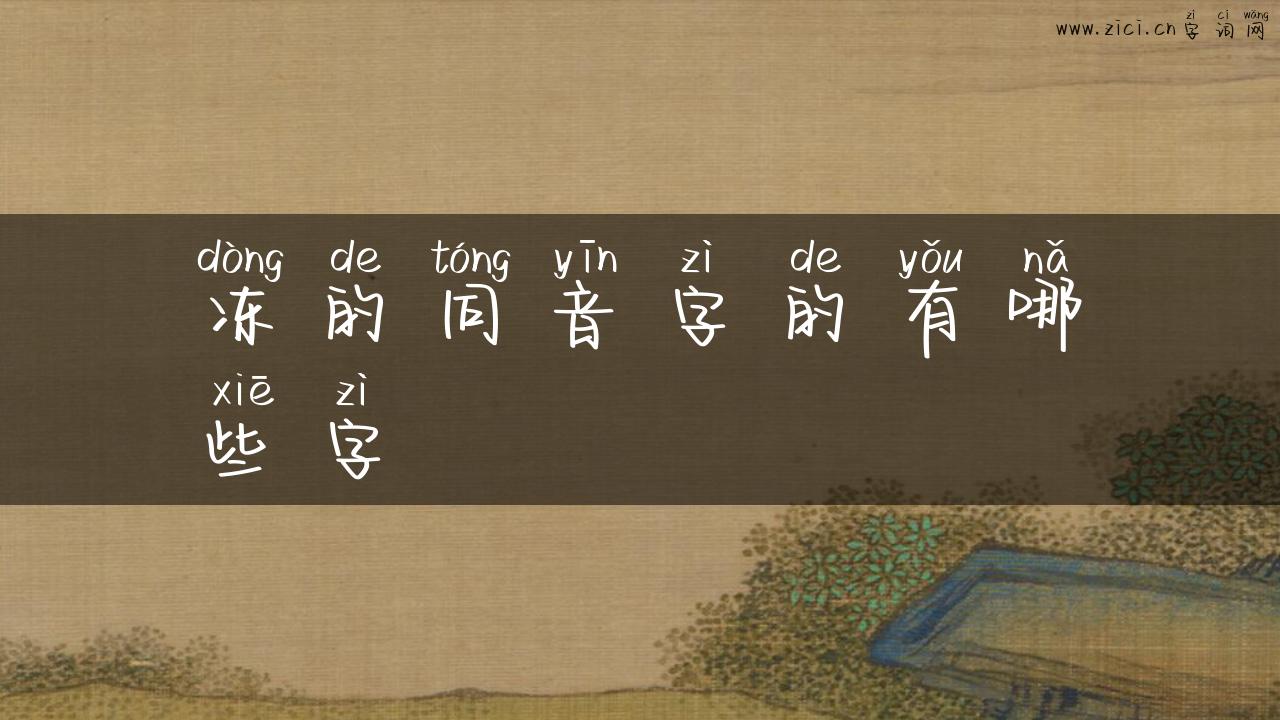 zì cí wǎng
www.zici.cn 字 词 网
dòng de tóng yīn zì de yǒu nǎ
冻 的 同 音 字 的 有 哪
xiē zì
些 字